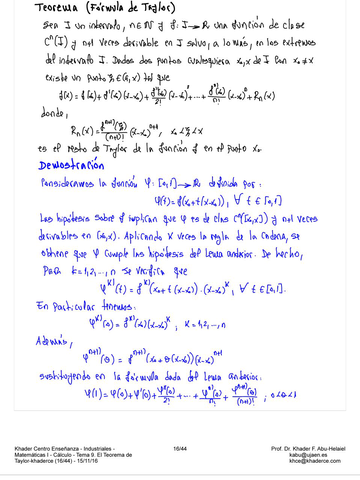 Teorema (Fórmula de Taylor)
Sea I un intervalo, n∈N y f: I→R una función de clase
Cⁿ(I) y n+1 veces derivable en I salvo, a lo más, en los extremos
del intervalo I. Dados dos puntos cualesquiera x₀,x de I con x₀≠x
existe un punto ξ∈(x₀,x) tal que
f(x)=f(x₀)+f'(x₀)(x-x₀)+f''(x₀)/2!(x-x₀)²+...+fⁿ⁾(x₀)/n!(x-x₀)ⁿ+Rn(x)
donde,
Rn(x)=fⁿ⁺¹⁾(ξ)/(n+1)!(x-x₀)ⁿ⁺¹, x₀<ξ<x
es el resto de Taylor de la función f en el punto x₀.
Demostración
Consideramos la función φ: [0,1]→R definida por:
φ(t)=f(x₀+t(x-x₀)), ∀ t∈[0,1]
Las hipótesis sobre f implican que φ es de clas Cⁿ([x₀,x]) y n+1 veces
derivables en (x₀,x). Aplicando k veces la regla de la cadena, se
obtiene que φ cumple las hipótesis del Lema anterior. De hecho,
para k=1,2,..., n se verifica que
φᵏ⁾(t)=fᵏ⁾(x₀+t(x-x₀)).(x-x₀)ᵏ, ∀ t∈[0,1].
En particular tenemos:
φᵏ⁾(0)=fᵏ⁾(x₀)(x-x₀)ᵏ; k=1,2,...,n
Además,
φⁿ⁺¹⁾(θ)=fⁿ⁺¹⁾(x₀+θ(x-x₀))(x-x₀)ⁿ⁺¹
sustituyendo en la fórmula dada del Lema anterior:
φ(1)=φ(0)+φ'(0)+φ''(0)/2!+...+φⁿ⁾(0)/n!+φⁿ⁺¹⁾(θ)/(n+1)!, 0<θ<1
Khader Centro Enseñanza - Industriales - 16/44 Prof. Dr. Khader F. Abu-Helaiel
Matemáticas I - Cálculo - Tema 9. El Teorema de kabu@ujaen.es
Taylor-khaderce (16/44) - 15/11/16 khce@khaderce.com